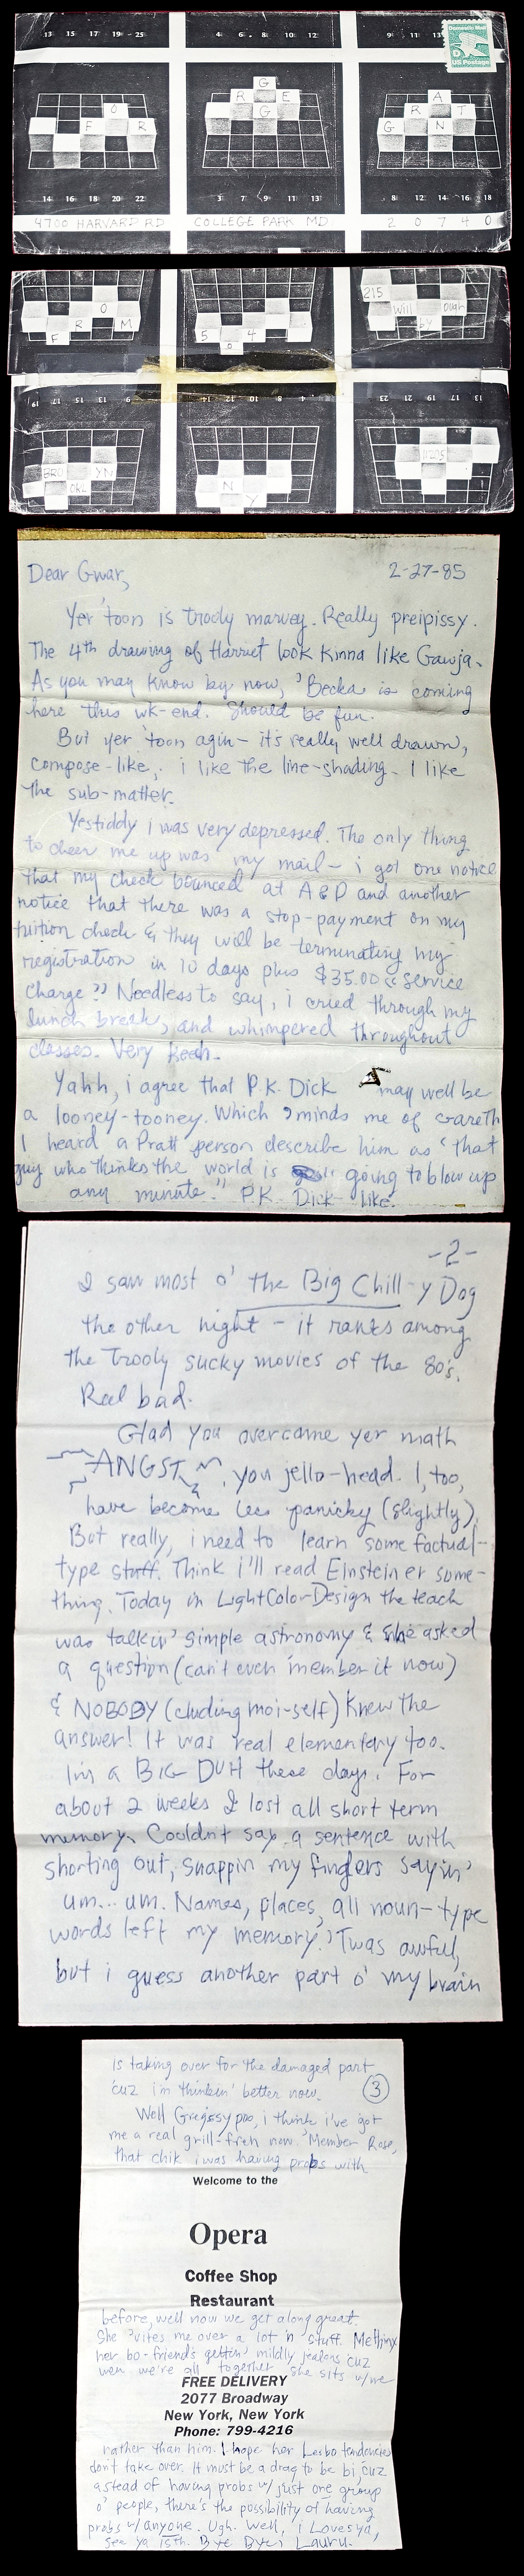 13 15 17 19 25
4 6 8 10 12
9 11 13
Domestic Mail
D
US Postage
O
F R
G
R E
G
A
R T
G N
14 16 18 20 22
3 7 9 11 13
8 12 14 16 18
4700 HARVARD RD COLLEGE PARK MD 20740
O
R M
F
5 4
0
215
Willoughby
BRO YN
OKL
N
Y
11205
Dear Gwar, 2-27-85
Yer 'toon is trooly marvey. Really preipissy.
The 4th drawing of Harriet look kinna like Gawja.
As you may know by now, 'Becka is coming
here this wk-end. Should be fun.
But yer 'toon agin - it's really well drawn,
compose-like, i like the line-shading. I like
the sub-matter.
Yestiddy i was very depressed. The only thing
to cheer me up was my mail - i got one notice
that my check bounced at A&P and another
notice that there was a stop-payment on my
tuition check & they will be terminating my
registration in 10 days plus $35.00 "service
charge". Needless to say, i cried through my
lunch break, and whimpered throughout
classes. Very
Yahh, i agree that P.K. Dick may well be
a looney-tooney. Which 'minds me of Gareth
I heard a Pratt person describe him as "that
guy who thinks the world is going to blow up
any minute." P.K. Dick like.
-2-
I saw most o' the Big Chill-y Dog
the other night - it ranks among
the trooly sucky movies of the 80's.
Reel bad.
Glad you overcame yer math
ANGST, you jello-head. I, too,
have become less panicky (slightly).
But really, i need to learn some factual-
type stuff. Think i'll read Einstein er some-
thing. Today in LightColorDesign the teach
was talkin' simple astronomy & she asked
a question (can't even 'member it now)
& NOBODY (cluding moi-self) knew the
answer! It was real elementary too.
I'm a BIG DUH these days. For
about 2 weeks I lost all short term
memory. Couldn't say a sentence with
shorting out, snappin my fingers sayin'
um... um. Names, places, all noun-type
words left my memory. 'Twas awful,
but i guess another part o' my brain
is taking over for the damaged part
'cuz i'm thinkin' better now. 3
Well Gregssypoo, i think i've got
me a real grill-fren now. 'Member Rose,
that chik i was having probs with
Welcome to the
Opera
Coffee Shop
Restaurant
before, well now we get along great.
She 'vites me over a lot 'n stuff. Methinx
her bo-friend's gettin' mildly jealous 'cuz
wen we're all together she sits w/me
FREE DELIVERY
2077 Broadway
New York, New York
Phone: 799-4216
rather than him. I hope her Lesbo tendencies
don't take over. It must be a drag to be bi, cuz
astead of having probs w/ just one group
o' people, there's the possibility of having
probs w/ anyone. Ugh. Well, i Loves ya,
see ya 15th. Bye Bye, Lauru.